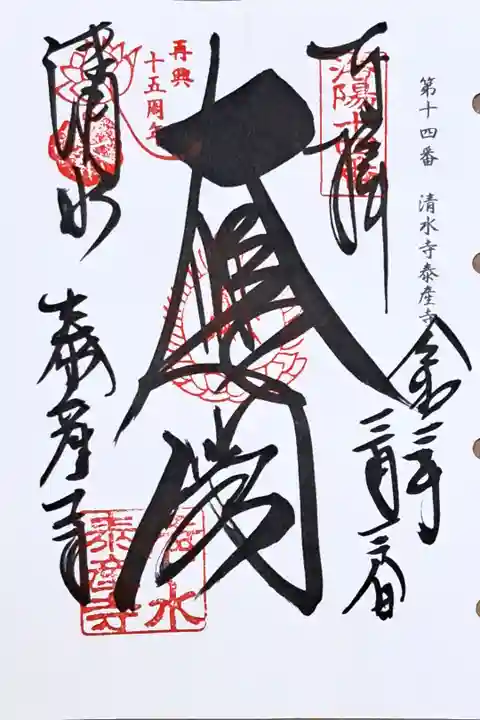 第十四番 清水寺泰産寺
奉拝
令和二年
大悲閣
再興
十五周年
清水
泰産寺
清水
泰産寺